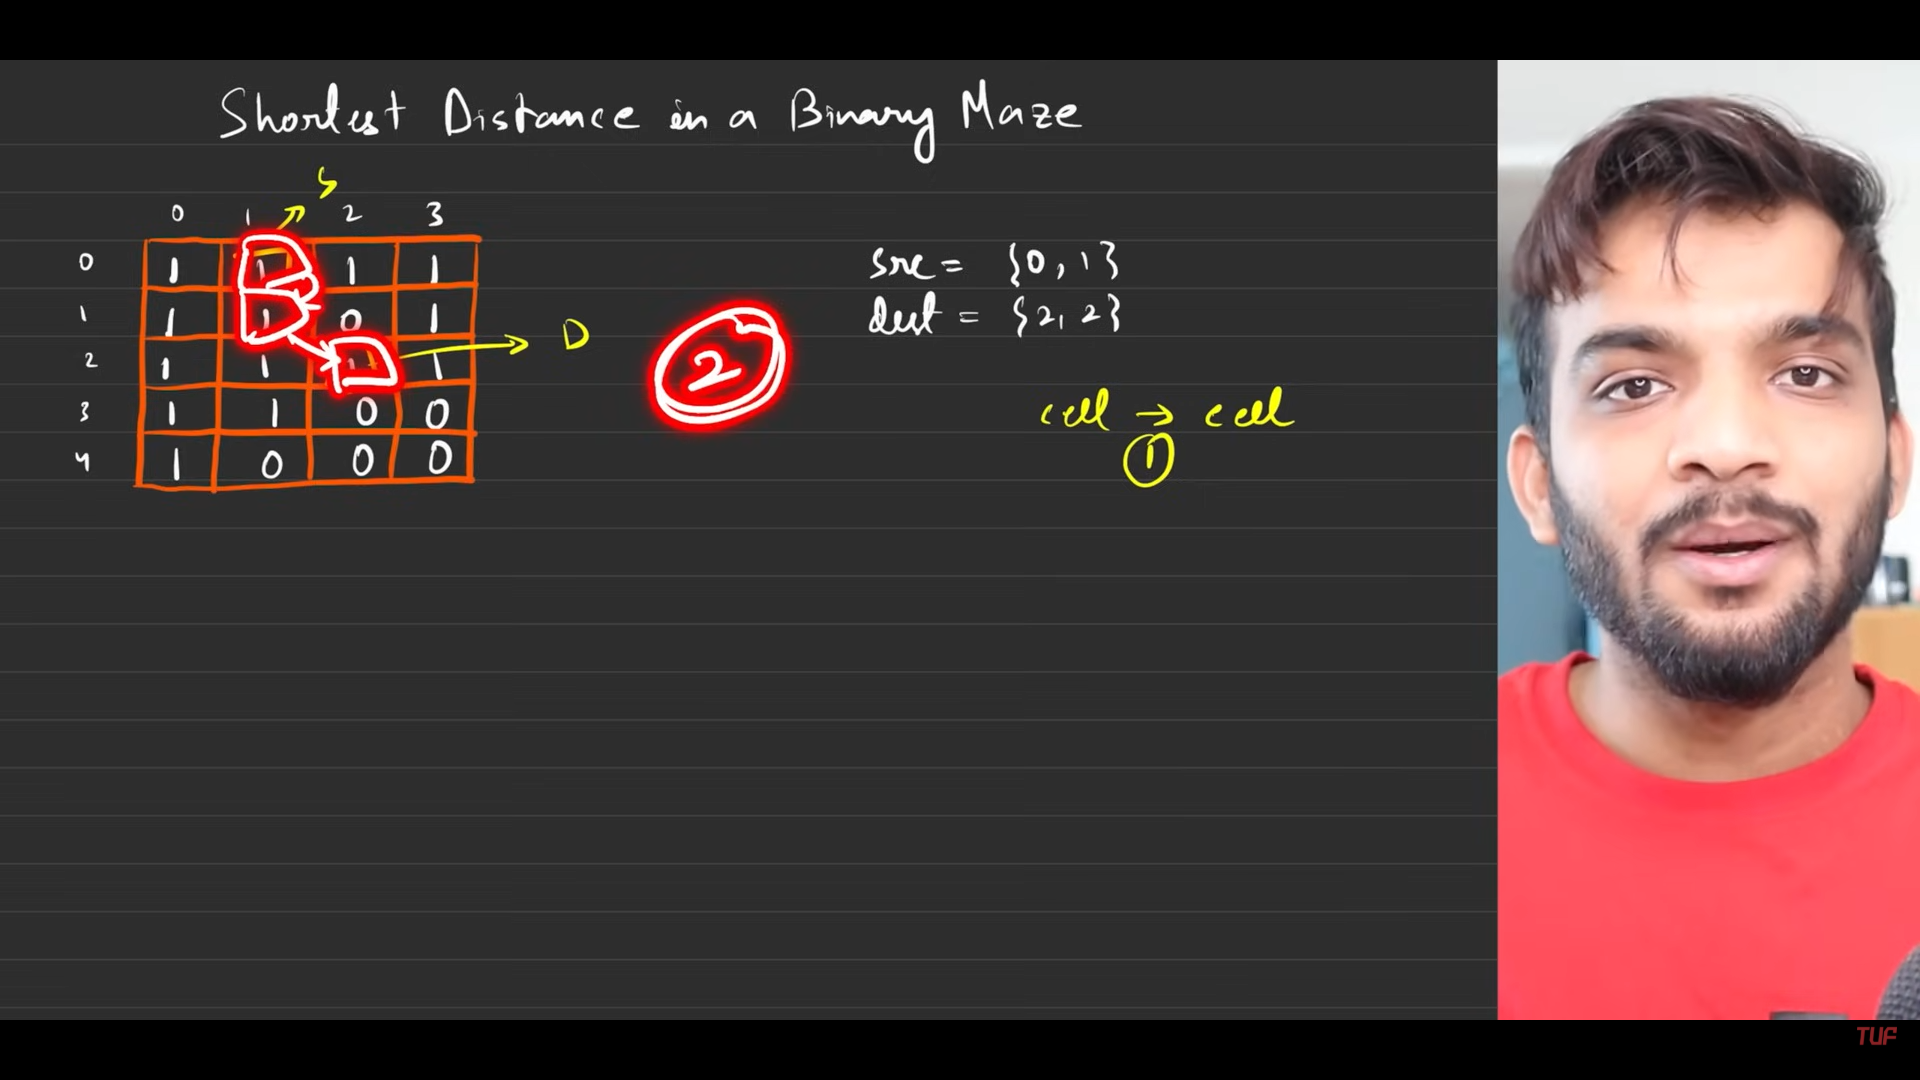 Shortest Distance in a Binary Maze
S
0 1 2 3
0 1 1 1 1
1 1 1 0 1
2 1 1 1 1
3 1 1 0 0
4 1 0 0 0
D
2
src = {0, 1}
dest = {2, 2}
cell → cell
1
TUF